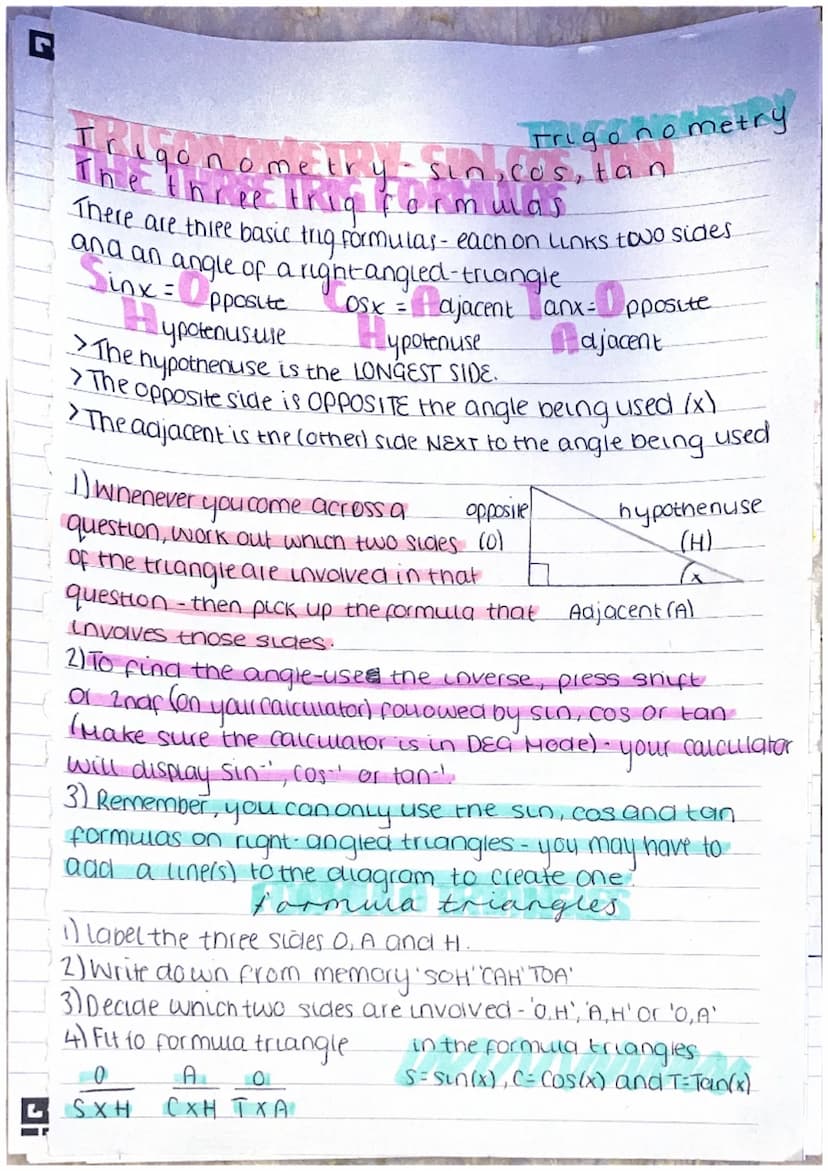 Trigonometry
Trigonometry - sin, cos, tan
The three trig formulas
There are three basic trig formulas - each on links two sides
and an angle of a right-angled-triangle
Sinx = Opposite Cosx = Adjacent Tanx = Opposite
Hypotenususe Hypotenuse Adjacent
> The hypotnenuse is the LONGEST SIDE.
> The opposite side is OPPOSITE the angle being used (x)
> The adjacent is the (other) side NEXT to the angle being used
1) Whenever you come across a
question, work out which two sides
of the triangle are involved in that
question - then pick up the formula that
involves those sides.
opposite
(O)
hypothenuse
(H)
x
Adjacent (A)
2) To find the angle-use the inverse, press shift
or 2ndf (on your calculator) followed by sin, cos or tan
(Make sure the calculator is in DEG Mode) - your calculator
will display sin⁻¹, cos⁻¹ or tan⁻¹.
3) Remember, you can only use the sin, cos and tan
formulas on right-angled triangles - you may have to
add a line(s) to the diagram to create one.
formula triangles
1) Label the three sides O, A and H.
2) Write down from memory 'SOH' 'CAH' 'TOA'
3) Decide which two sides are involved - 'O,H', 'A,H' or 'O,A'
4) Fit to formula triangle
in the formula triangles
S = sin(x), C = Cos(x) and T = Tan(x)
O A O
S X H C X H T X A